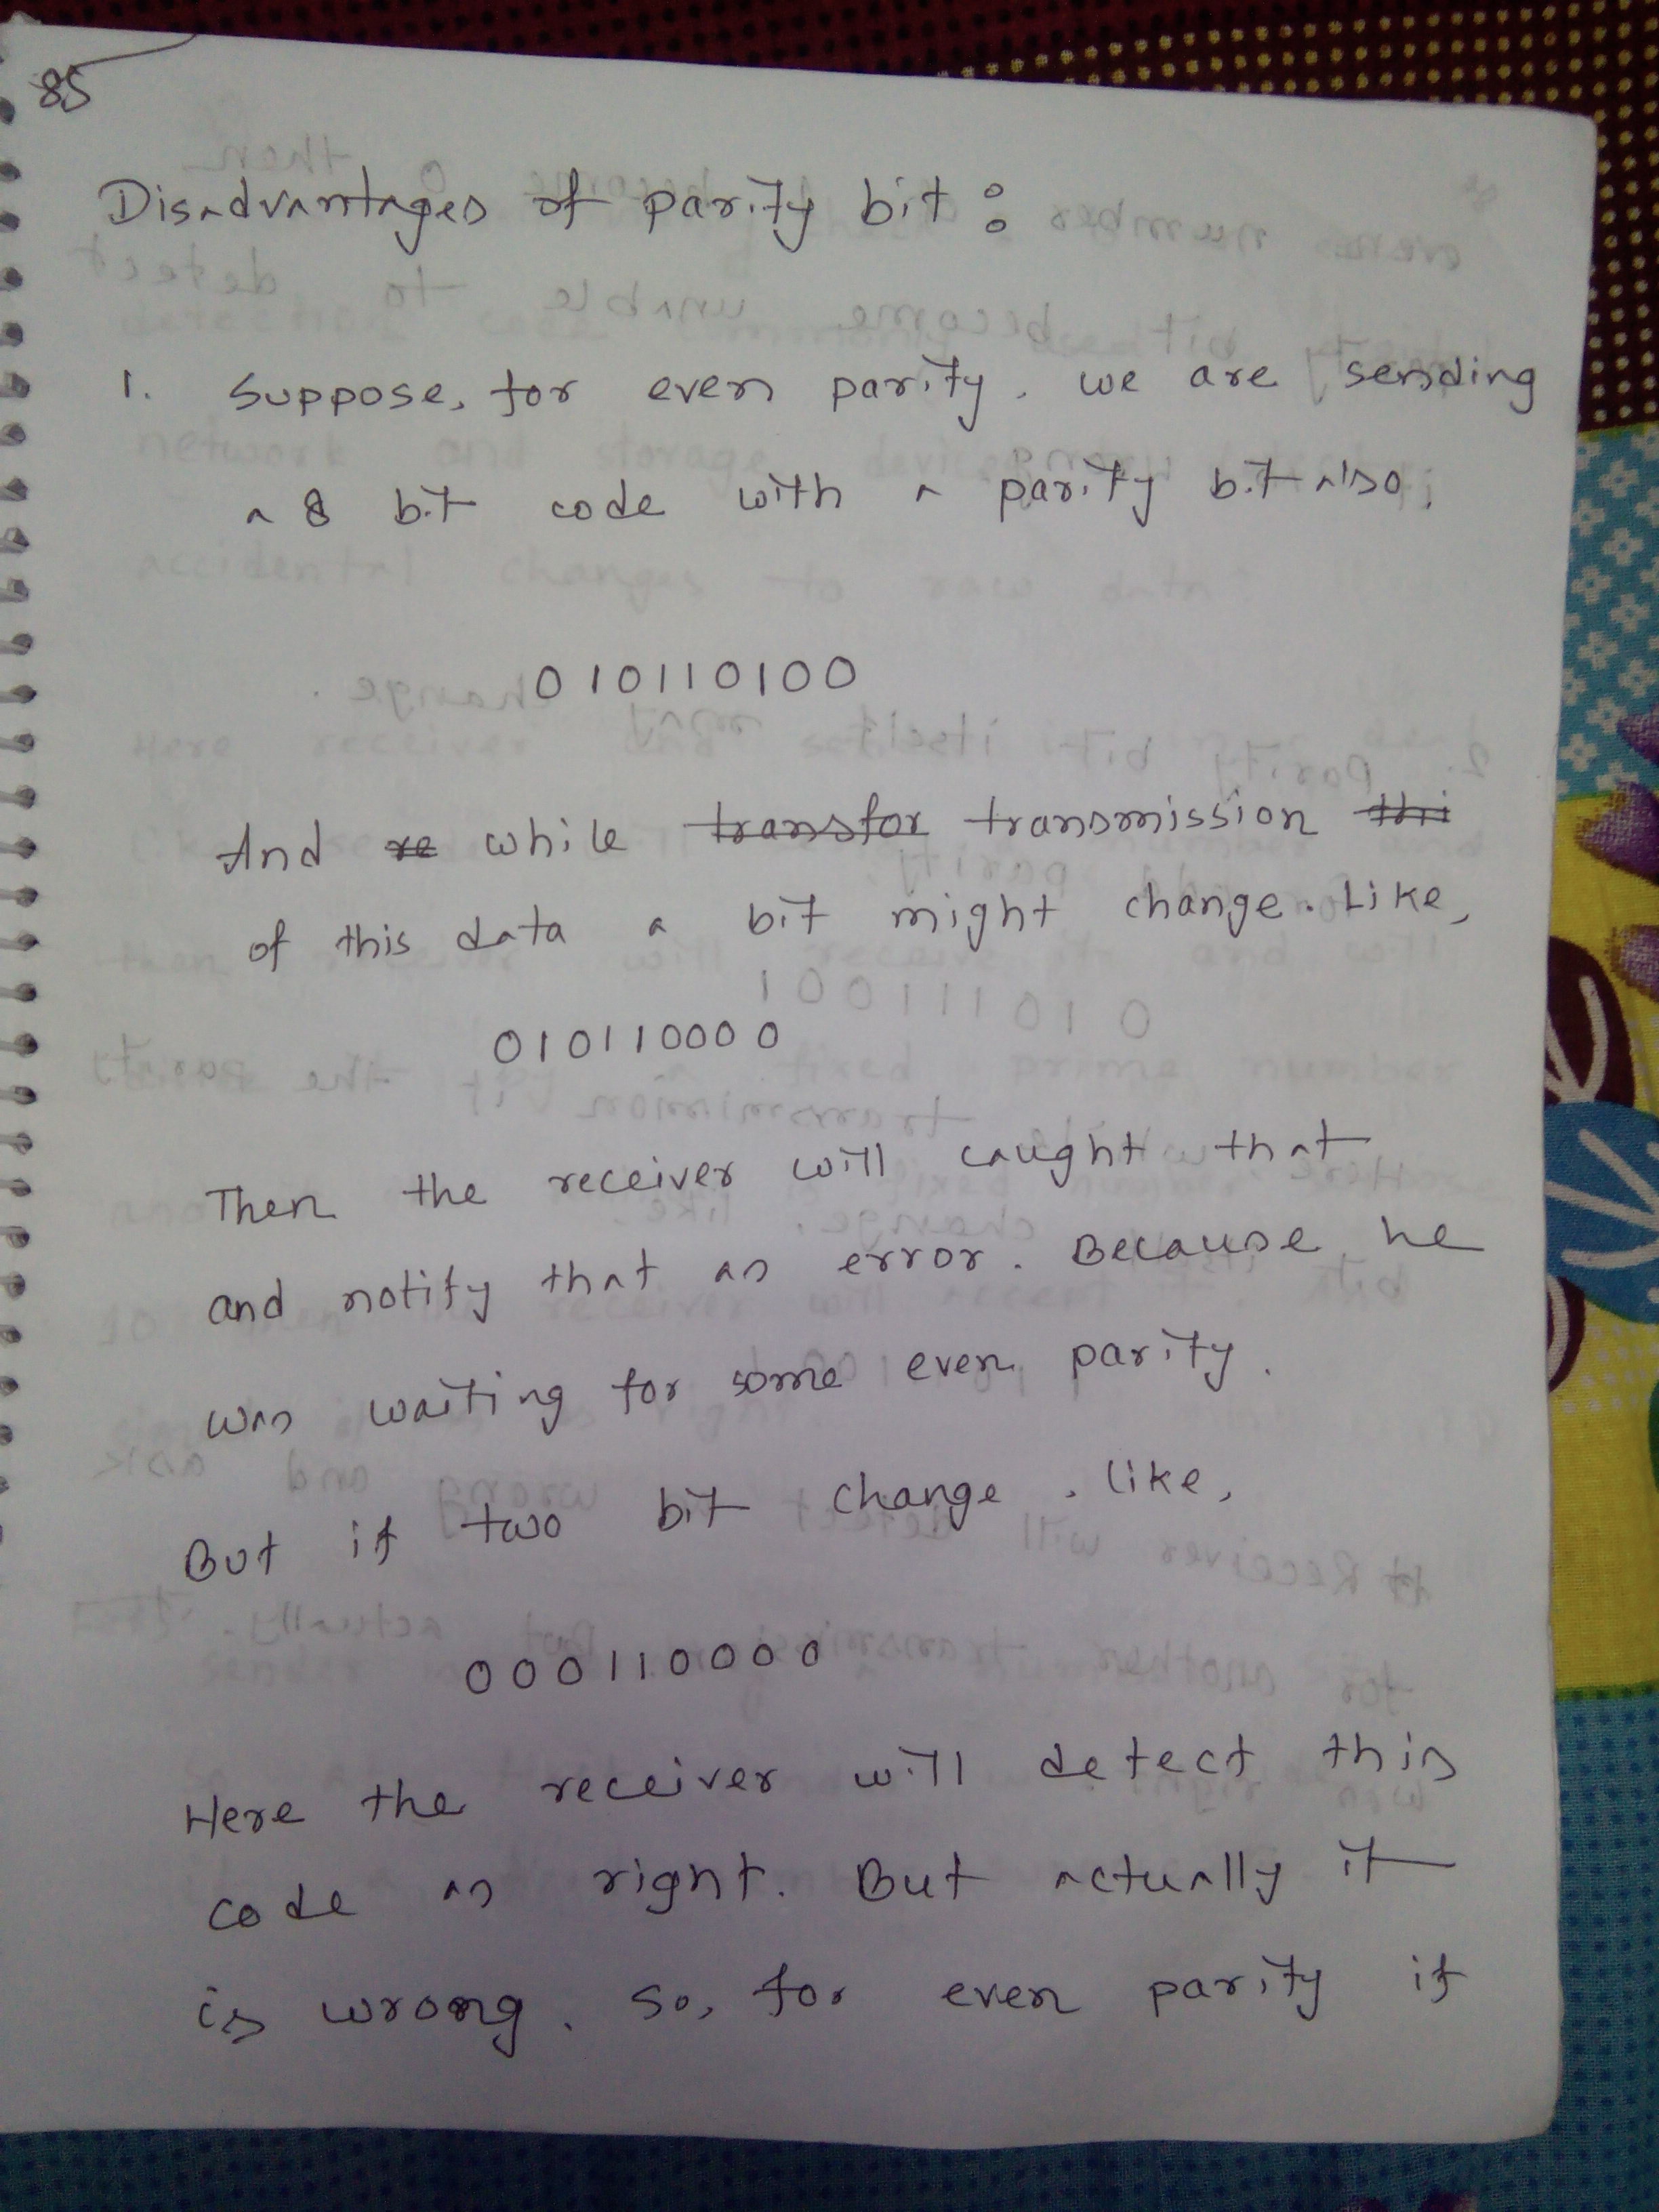 85
Disadvantages of parity bit :
1. Suppose, for even parity, we are sending
a 8 bit code with a parity bit also;
010110100
And re while transfor transmission thi
of this data a bit might change. Like,
010110000
Then the receiver will caught that
and notify that as error. Because he
was waiting for some even parity.
But if two bit change, like,
000110000
Here the receiver will detect this
code as right. But actually it
is wrong. So, for even parity if